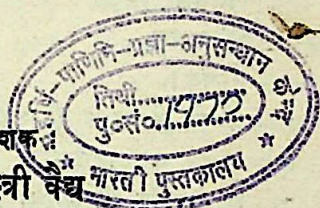 पाणिनि-प्रज्ञा-अनुसन्धान
तिथी..............
पु०सं०.1970......
भारती पुस्तकालय
शक
त्री वैद्य